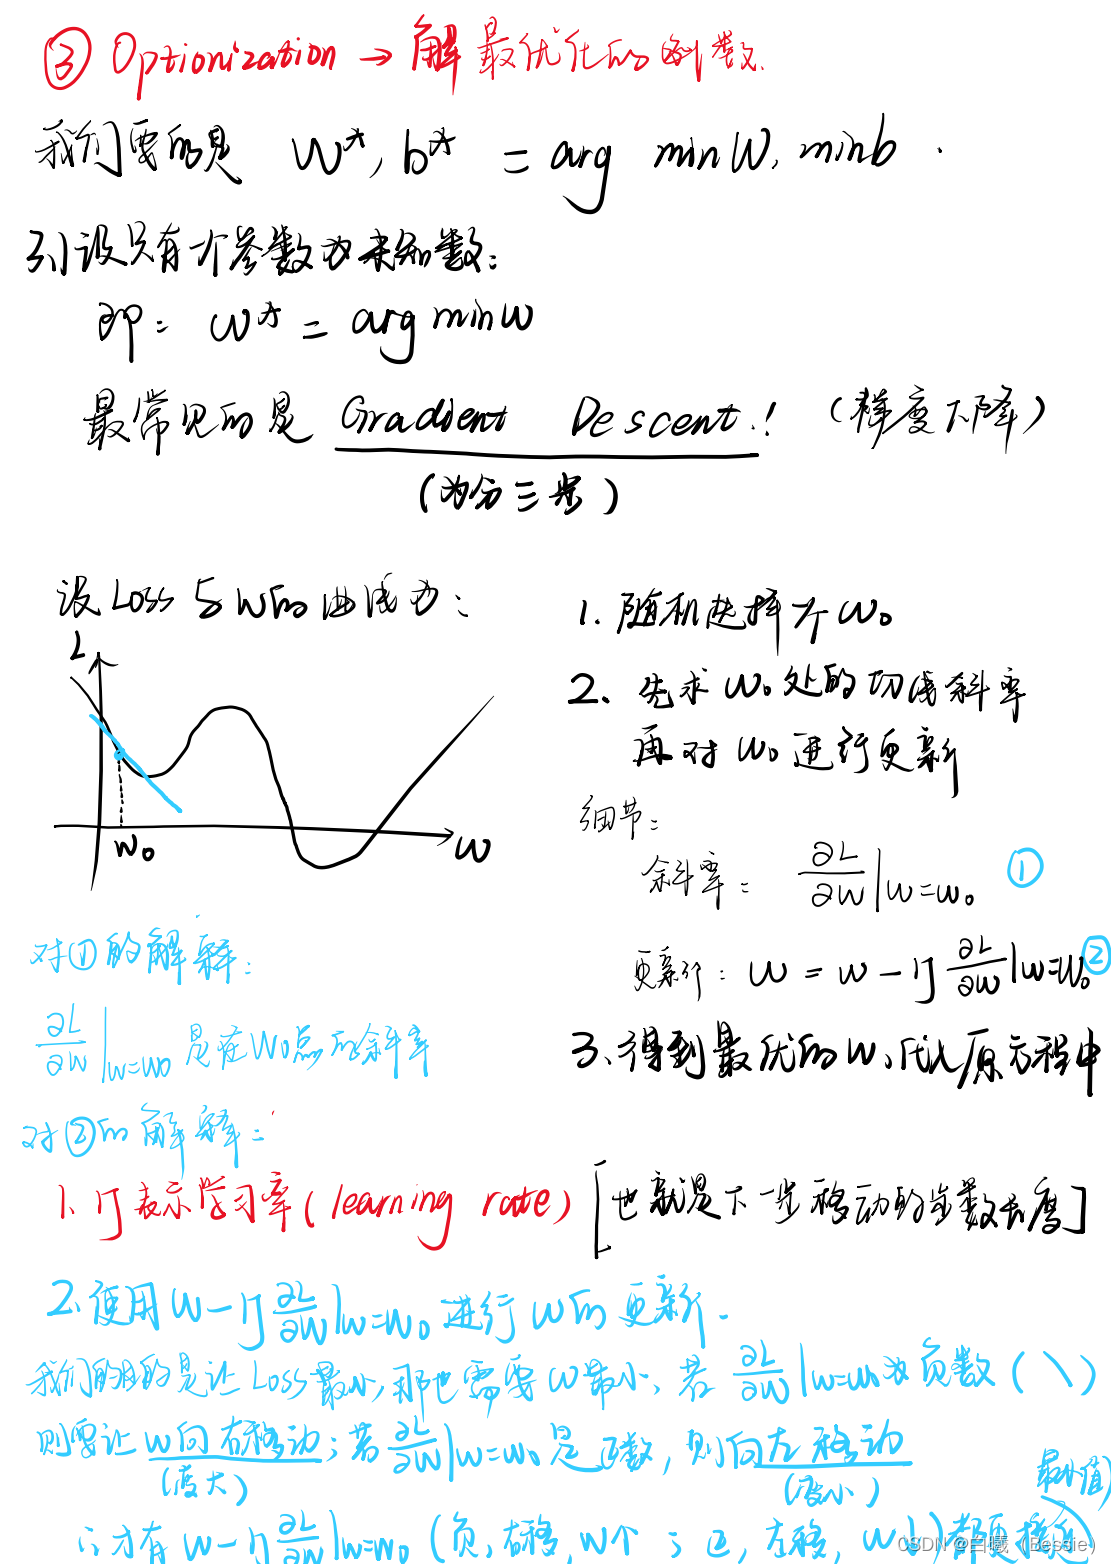 ③ Optionization → 解最优化的函数.
我们要的是 W*, b* = arg min W, min b .
引设只有一个参数为未知数:
即: W* = arg min W
最常见的是 Gradient Descent.! (梯度下降)
(为分三步)
设 Loss 与 W的曲线为:
L
W₀
W
1. 随机选择个 W₀
2. 先求 W₀ 处的切线斜率
再对 W₀ 进行更新
细节:
斜率: ∂L/∂W |w=w₀ ①
更新: W = W - η ∂L/∂W |w=W₀ ②
3、得到最优的W,代入原方程中
对①的解释:
∂L/∂W |w=w₀ 是在W₀点的斜率
对②的解释:
1. η表示学习率(learning rate) [也就是下一步移动的步数长度]
2.使用 W - η ∂L/∂W |w=w₀ 进行 W的更新.
我们的目的是让 Loss 最小,那也需要 W 最小, 若 ∂L/∂W |w=w₀ 为负数 (\)
则要让 W向右移动; 若 ∂L/∂W |w=w₀ 是正数, 则向左移动
(变大)
(变小)
最小值)
∴才有 W - η ∂L/∂W |w=w₀ (负,右移,W个; 正,左移, W↓) 都更接近
CSDN @白曦(Bessie)